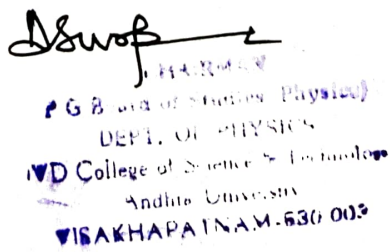 CHAIRMAN
P G B of Studies Physics)
DEPT. OF PHYSICS
VD College of Science & Technology
Andhra University
VISAKHAPATNAM-530 003